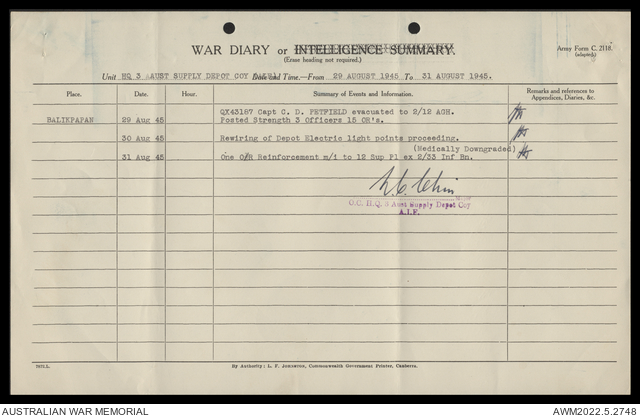 WAR DIARY or INTELLIGENCE SUMMARY.
(Erase heading not required.)
Army Form C. 2118.
(adapted)
Unit HQ 3 AUST SUPPLY DEPOT COY Date and Time.—From 29 AUGUST 1945 To 31 AUGUST 1945.
Place. Date. Hour. Summary of Events and Information. Remarks and references to Appendices, Diaries, &c.
QX43187 Capt C. D. PETFIELD evacuated to 2/12 AGH.
BALIKPAPAN 29 Aug 45 Posted Strength 3 Officers 15 OR's.
30 Aug 45 Rewiring of Depot Electric light points proceeding.
(Medically Downgraded)
31 Aug 45 One O/R Reinforcement m/i to 12 Sup Pl ex 2/33 Inf Bn.
Major
O.C. H.Q. 3 Aust Supply Depot Coy
A.I.F.
7872.L. By Authority: L. F. JOHNSTON, Commonwealth Government Printer, Canberra.
AUSTRALIAN WAR MEMORIAL AWM2022.5.2748